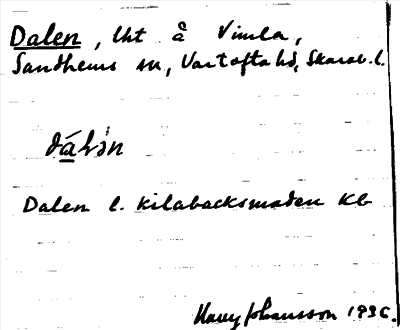 Dalen, lht å Vimla,
Sandhems sn, Vartofta hd, Skarab. l.
dáƚən
Dalen l. Kilabacksmaden Kb
Harry Johansson 1936.